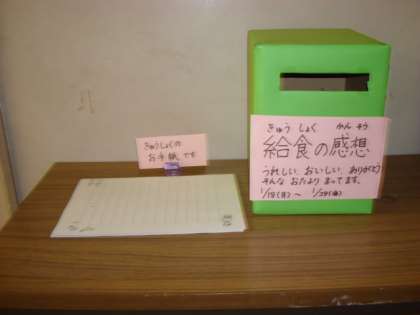 きゅうしょくの
お手紙です
きゅう しょく かん そう
給食の感想
うれしい、おいしい、ありがとう
そんな おたより まってます。